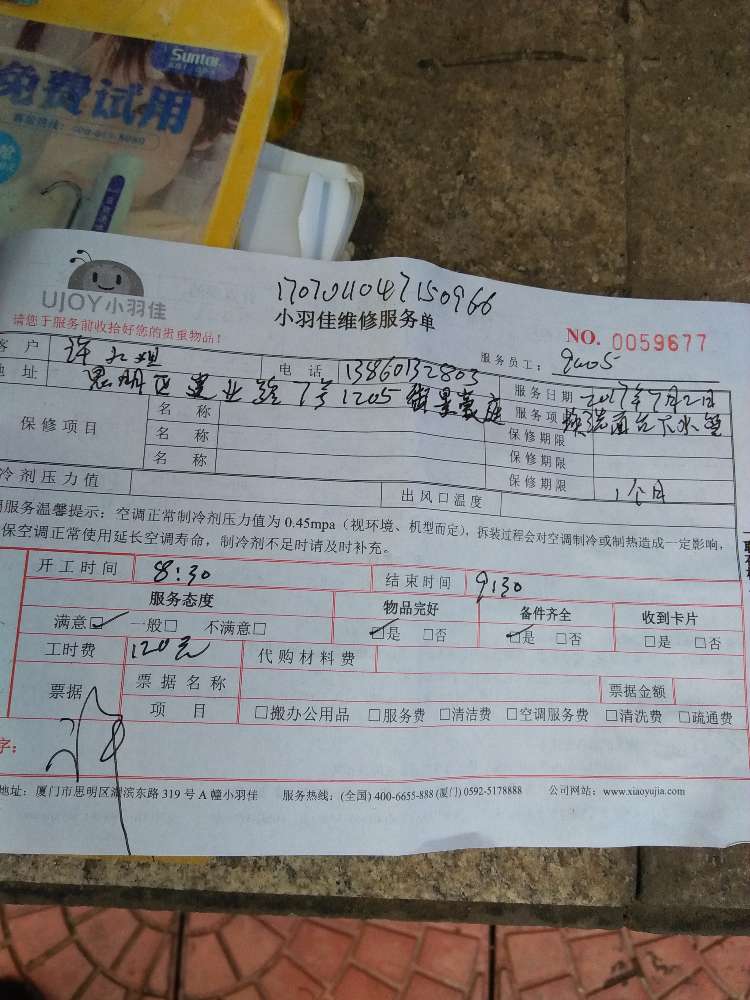 Suntar
免费试用
客服热线：400-655-8080
1707011047150966
UJOY小羽佳
小羽佳维修服务单
NO. 0059677
请您于服务前收拾好您的贵重物品！
服务员工： 9005
客 户 许 姐 电 话 13860132803 服务日期 2017年7月2日
地 址 思明区建业路7号1205 豪庭 服务项 洗面台下水管
保修项目 名 称 保修期限
名 称 保修期限
名 称 保修期限 1个月
冷剂压力值 出风口温度
服务温馨提示：空调正常制冷剂压力值为 0.45mpa（视环境、机型而定），拆装过程会对空调制冷或制热造成一定影响，
保空调正常使用延长空调寿命，制冷剂不足时请及时补充。
开工时间 8:30 结束时间 9:30
服务态度 物品完好 备件齐全 收到卡片
满意☑ 一般□ 不满意□ ☑是 □否 ☑是 □否 □是 □否
工时费 120元 代购材料费
票据 票据名称 票据金额
项 目 □搬办公用品 □服务费 □清洁费 □空调服务费 □清洗费 □疏通费
字：
地址：厦门市思明区湖滨东路 319 号 A 幢小羽佳 服务热线：(全国) 400-6655-888 (厦门) 0592-5178888 公司网站：www.xiaoyujia.com